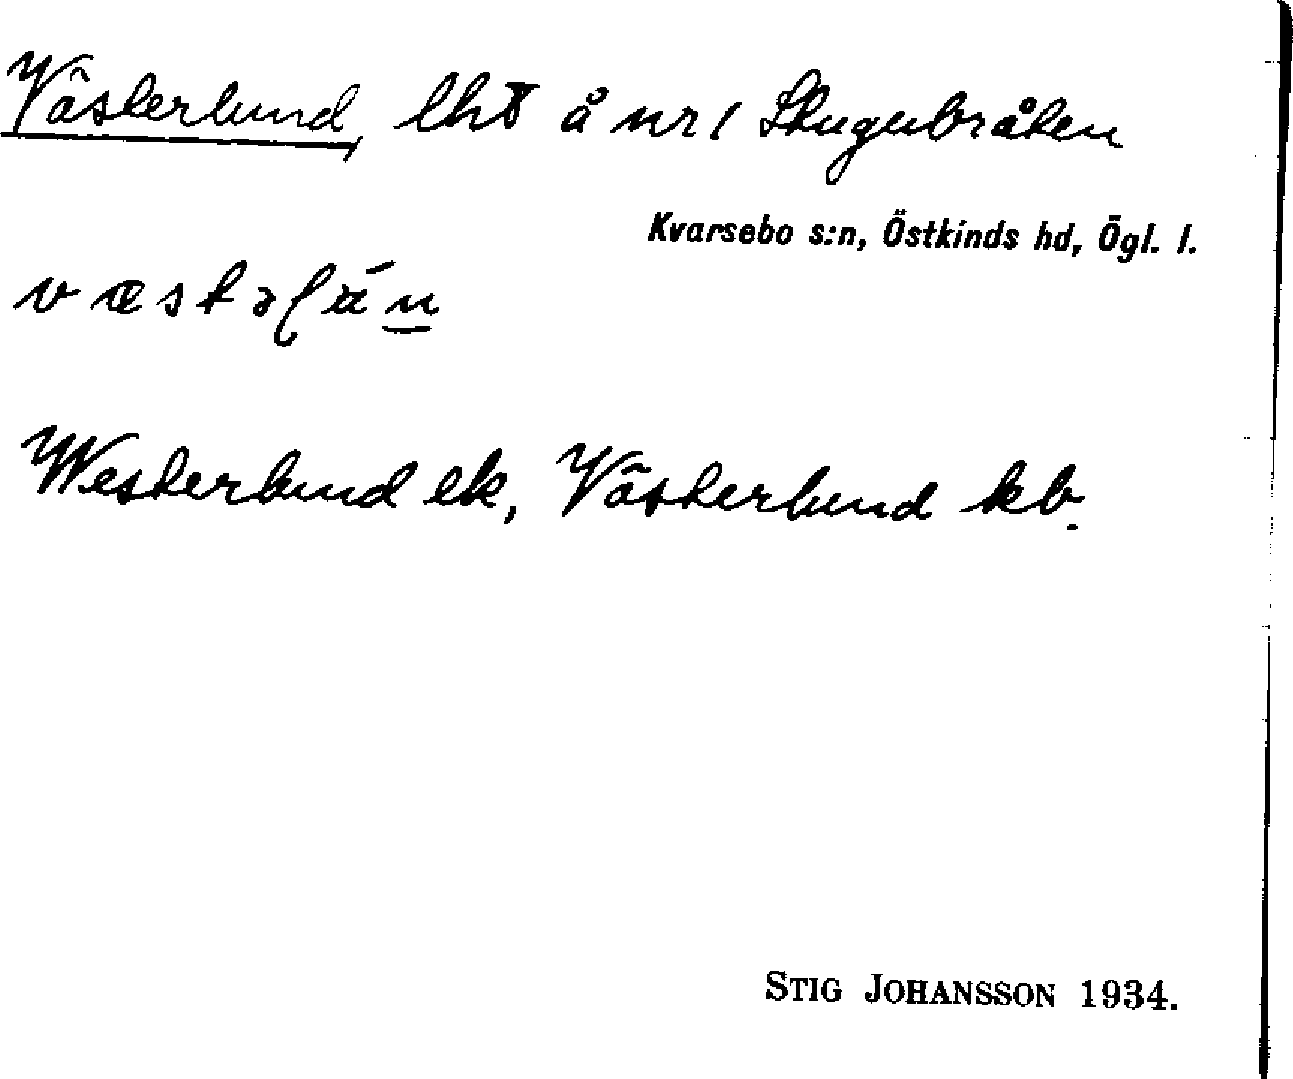 Västerlund, lht å nr 1 Skugubråten
Kvarsebo s:n, Östkinds hd, Ögl. l.
Westerlund ek, Västerlund kb.
STIG JOHANSSON 1934.